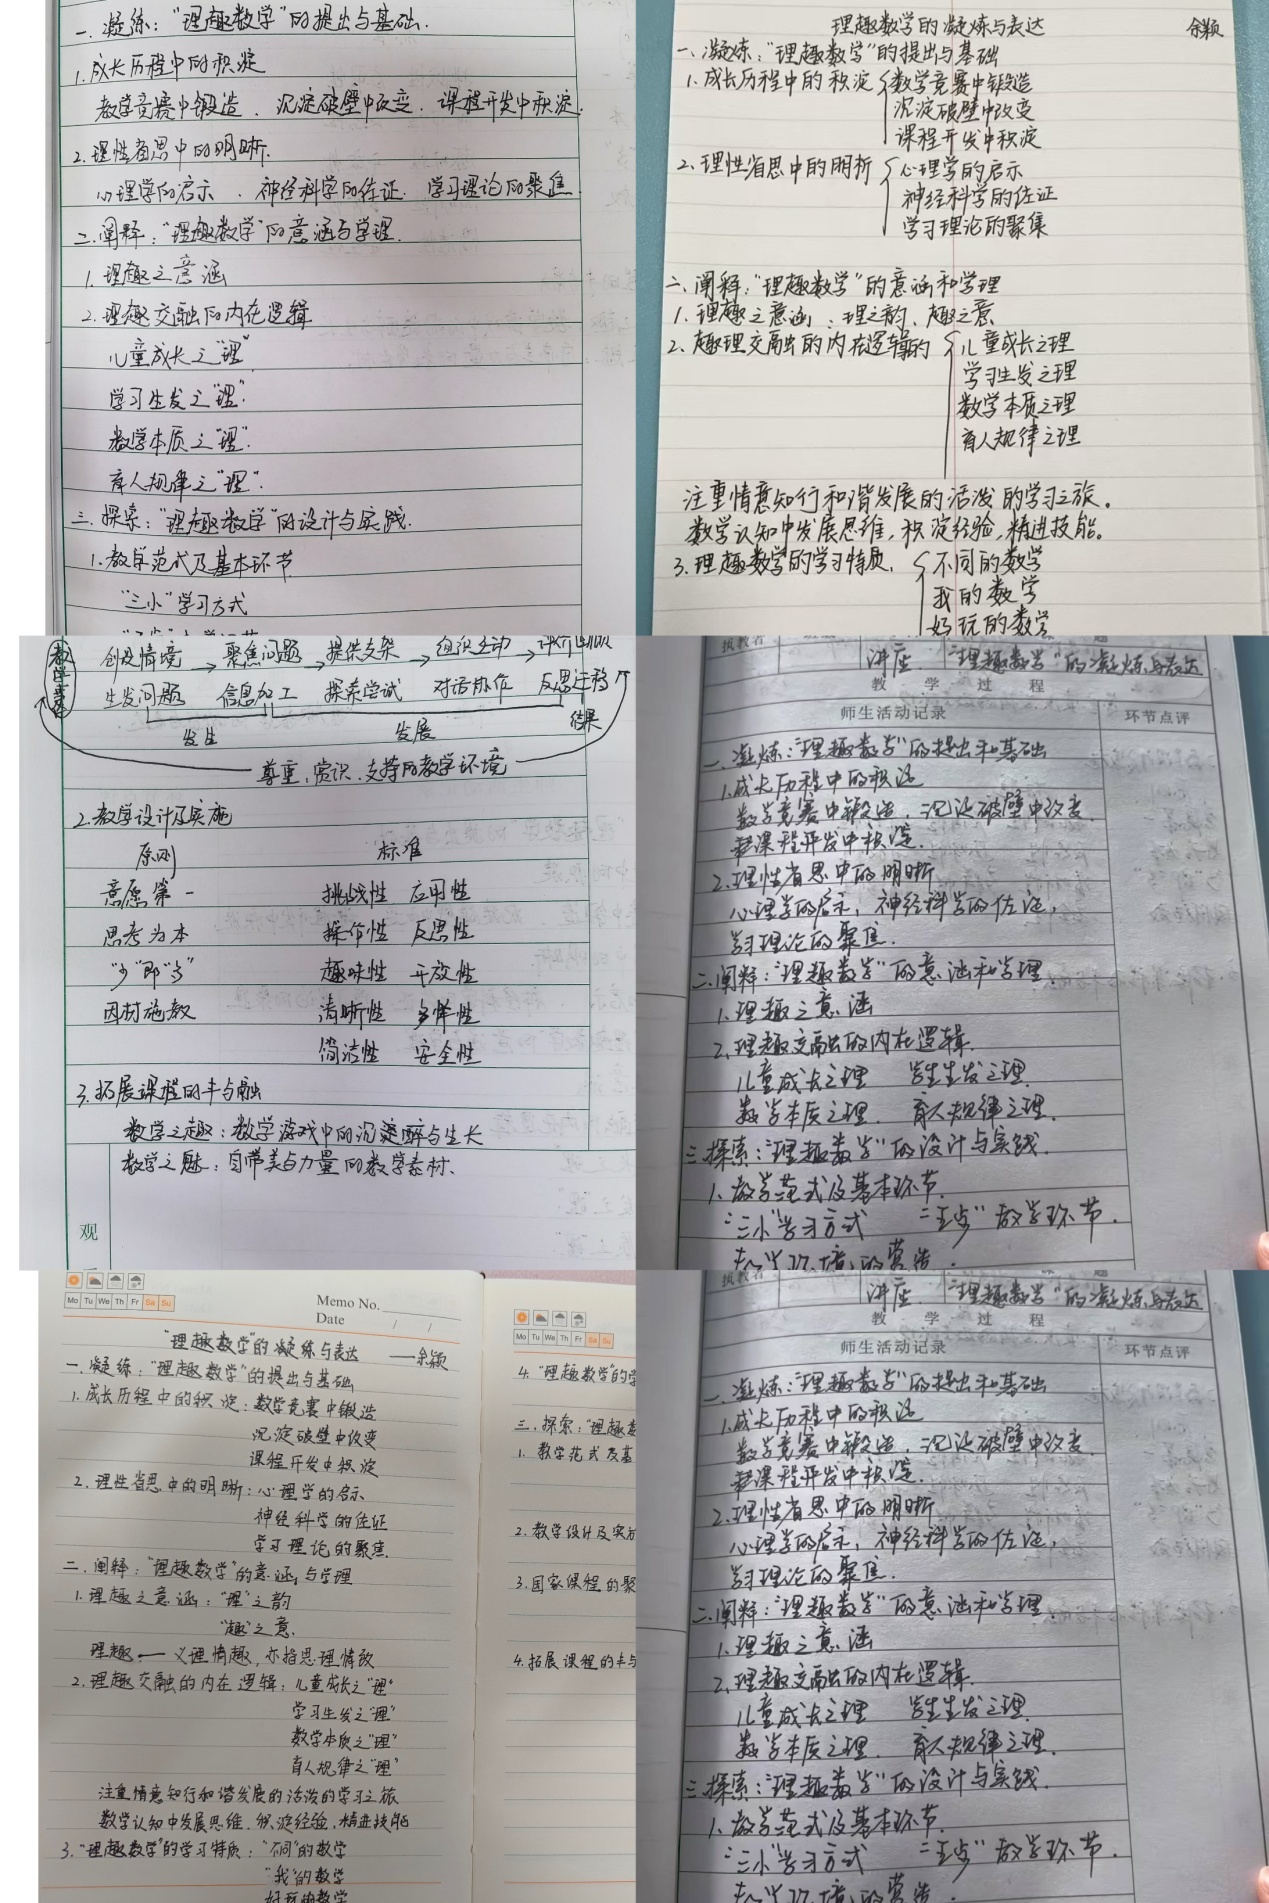 一、凝练：“理趣数学”的提出与基础.
1.成长历程中的积淀
教学竞赛中锻造、沉淀破壁中改变、课程开发中积淀.
2.理性省思中的明晰.
心理学的启示、神经科学的佐证、学习理论的聚焦
二.阐释：“理趣数学”的意涵与学理.
1.理趣之意涵
2.理趣交融的内在逻辑
儿童成长之“理”
学习生发之“理”.
数学本质之“理”.
育人规律之“理”.
三.探索：“理趣数学”的设计与实践.
1.教学范式及基本环节
“三小”学习方式
理趣数学的凝炼与表达 余颖
一、凝炼：“理趣数学”的提出与基础
1.成长历程中的积淀
数学竞赛中锻造
沉淀破壁中改变
课程开发中积淀
2.理性省思中的明析
心理学的启示
神经科学的佐证
学习理论的聚集
二、阐释：“理趣数学”的意涵和学理
1.理趣之意涵、理之韵、趣之意
2、趣理交融的内在逻辑的
儿童成长之理
学习生发之理
数学本质之理
育人规律之理
注重情意知行和谐发展的活泼的学习之旅。
数学认知中发展思维，积淀经验，精进技能。
3.理趣数学的学习特质、
不同的数学
我的数学
好玩的数学
创设情境→聚焦问题→提供支架→组织互动→评价回顾
生发问题 信息加工 探索尝试 对话协作 反思迁移
发生 发展 结果
尊重、赏识、支持的教学环境
2.教学设计及实施
原则 标准
意愿第一 挑战性 应用性
思考为本 操作性 反思性
“少”即“多” 趣味性 开放性
因材施教 清晰性 多样性
简洁性 安全性
3.拓展课程的丰与融
数学之趣：数学游戏中的沉醉与生长
数学之魅：自带美与力量的数学素材、
观
执教者 课题
讲座 “理趣数学”的凝炼与表达
教学过程
师生活动记录 环节点评
一、凝炼：“理趣数学”的提出和基础
1.成长历程中的积淀
数学竞赛中锻造，沉淀破壁中改变
课程开发中积淀.
2.理性省思中的明晰
心理学的启示，神经科学的佐证，
学习理论的聚焦.
二、阐释：“理趣数学”的意涵和学理
1.理趣之意涵
2、理趣交融的内在逻辑.
儿童成长之理 学生生发之理
数学本质之理. 育人规律之理.
三、探索：“理趣数学”的设计与实践.
1.教学范式及基本环节.
“三小”学习方式 “五步”教学环节.
Mo Tu We Th Fr Sa Su
Memo No.
Date / /
“理趣数学”的凝练与表达 ——余颖
一.凝练：“理趣数学”的提出与基础
1.成长历程中的积淀：数学竞赛中锻造
沉淀破壁中改变
课程开发中积淀
2.理性省思中的明晰：心理学的启示
神经科学的佐证
学习理论的聚焦
二.阐释：“理趣数学”的意涵与学理
1.理趣之意涵：“理”之韵
“趣”之意
理趣——义理情趣，亦指思理情致
2.理趣交融的内在逻辑：儿童成长之“理”
学习生发之“理”
数学本质之“理”
育人规律之“理”
注重情意知行和谐发展的活泼的学习之旅
数学认知中发展思维、积淀经验、精进技能
3.“理趣数学”的学习特质：“不同”的数学
“我”的数学
好玩的数学
Mo Tu We Th Fr Sa Su
4.“理趣数学”的学
三.探索：“理趣数
1.教学范式及基
2.教学设计及实施
3.国家课程的聚
4.拓展课程的丰与
执教者 课题
讲座 “理趣数学”的凝炼与表达
教学过程
师生活动记录 环节点评
一、凝炼：“理趣数学”的提出和基础
1.成长历程中的积淀
数学竞赛中锻造，沉淀破壁中改变
课程开发中积淀.
2.理性省思中的明晰
心理学的启示，神经科学的佐证，
学习理论的聚焦.
二、阐释：“理趣数学”的意涵和学理
1.理趣之意涵
2、理趣交融的内在逻辑.
儿童成长之理 学生生发之理
数学本质之理. 育人规律之理.
三、探索：“理趣数学”的设计与实践.
1.教学范式及基本环节.
“三小”学习方式 “五步”教学环节.